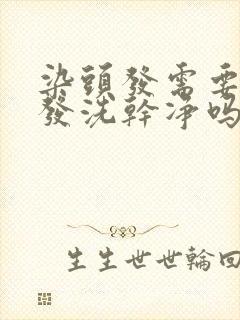 染頭發需要
發洗幹凈嗎
生生世世輪回